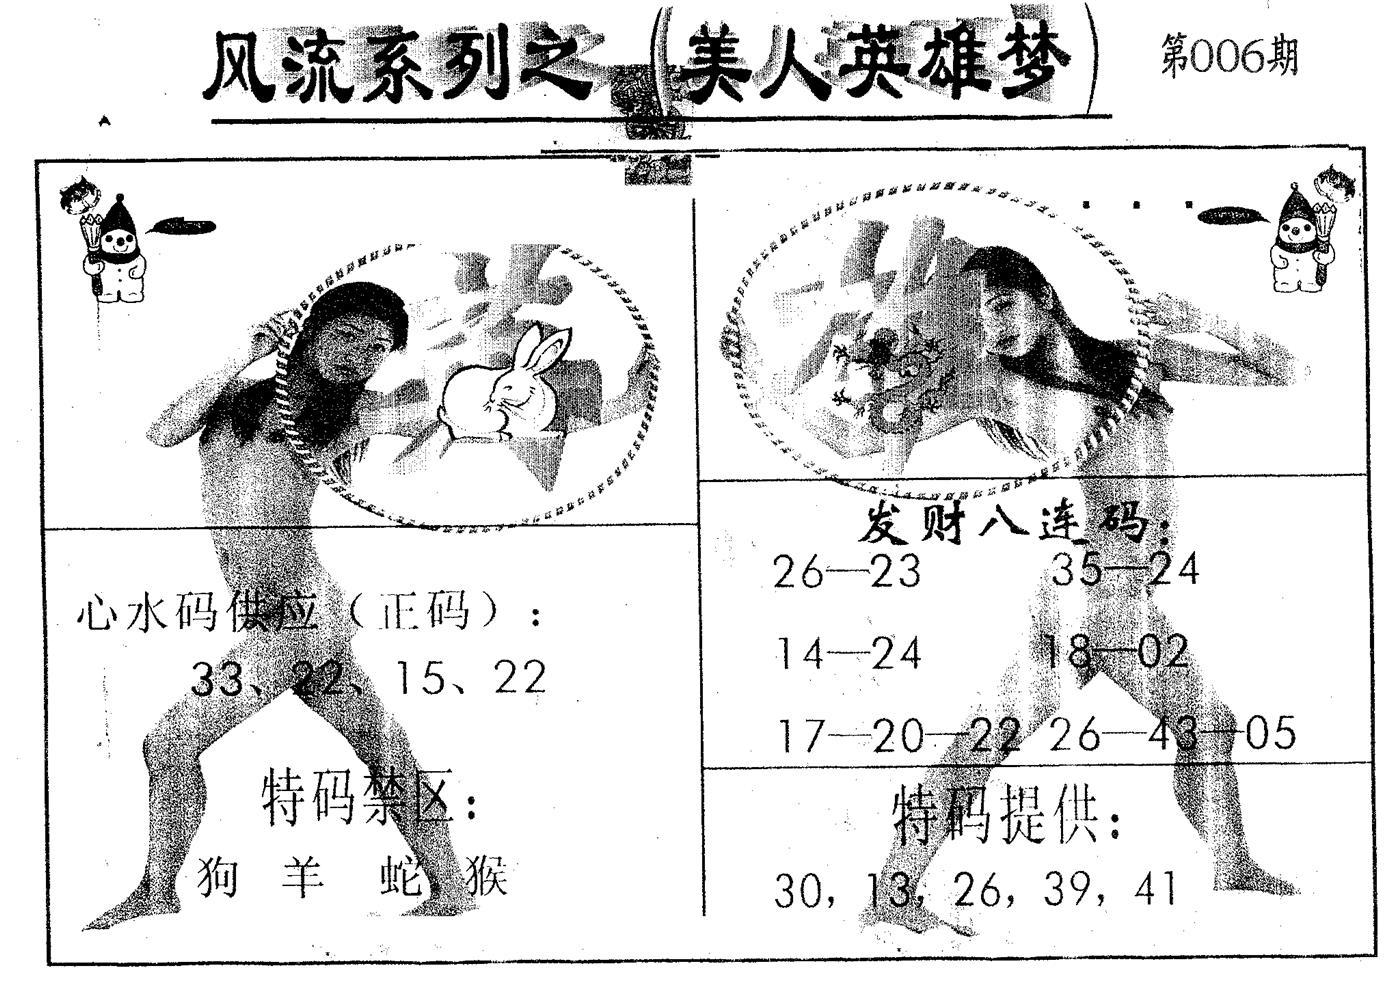 风流系列之（美人英雄梦）
第006期
心水码供应（正码）：
33、22、15、22
特码禁区：
狗 羊 蛇 猴
发财八连码：
26—23 35—24
14—24 18—02
17—20—22 26—43—05
特码提供：
30，13，26，39，41